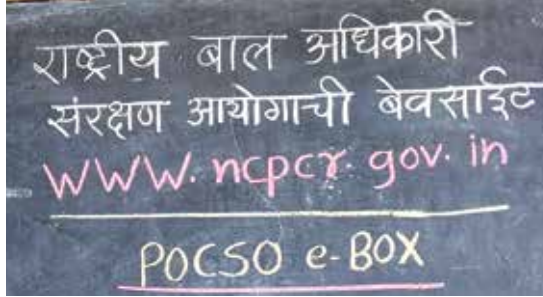 राष्ट्रीय बाल अधिकारी
संरक्षण आयोगाची बेवसाईट
WWW.ncpcr.gov.in
POCSO e-BOX